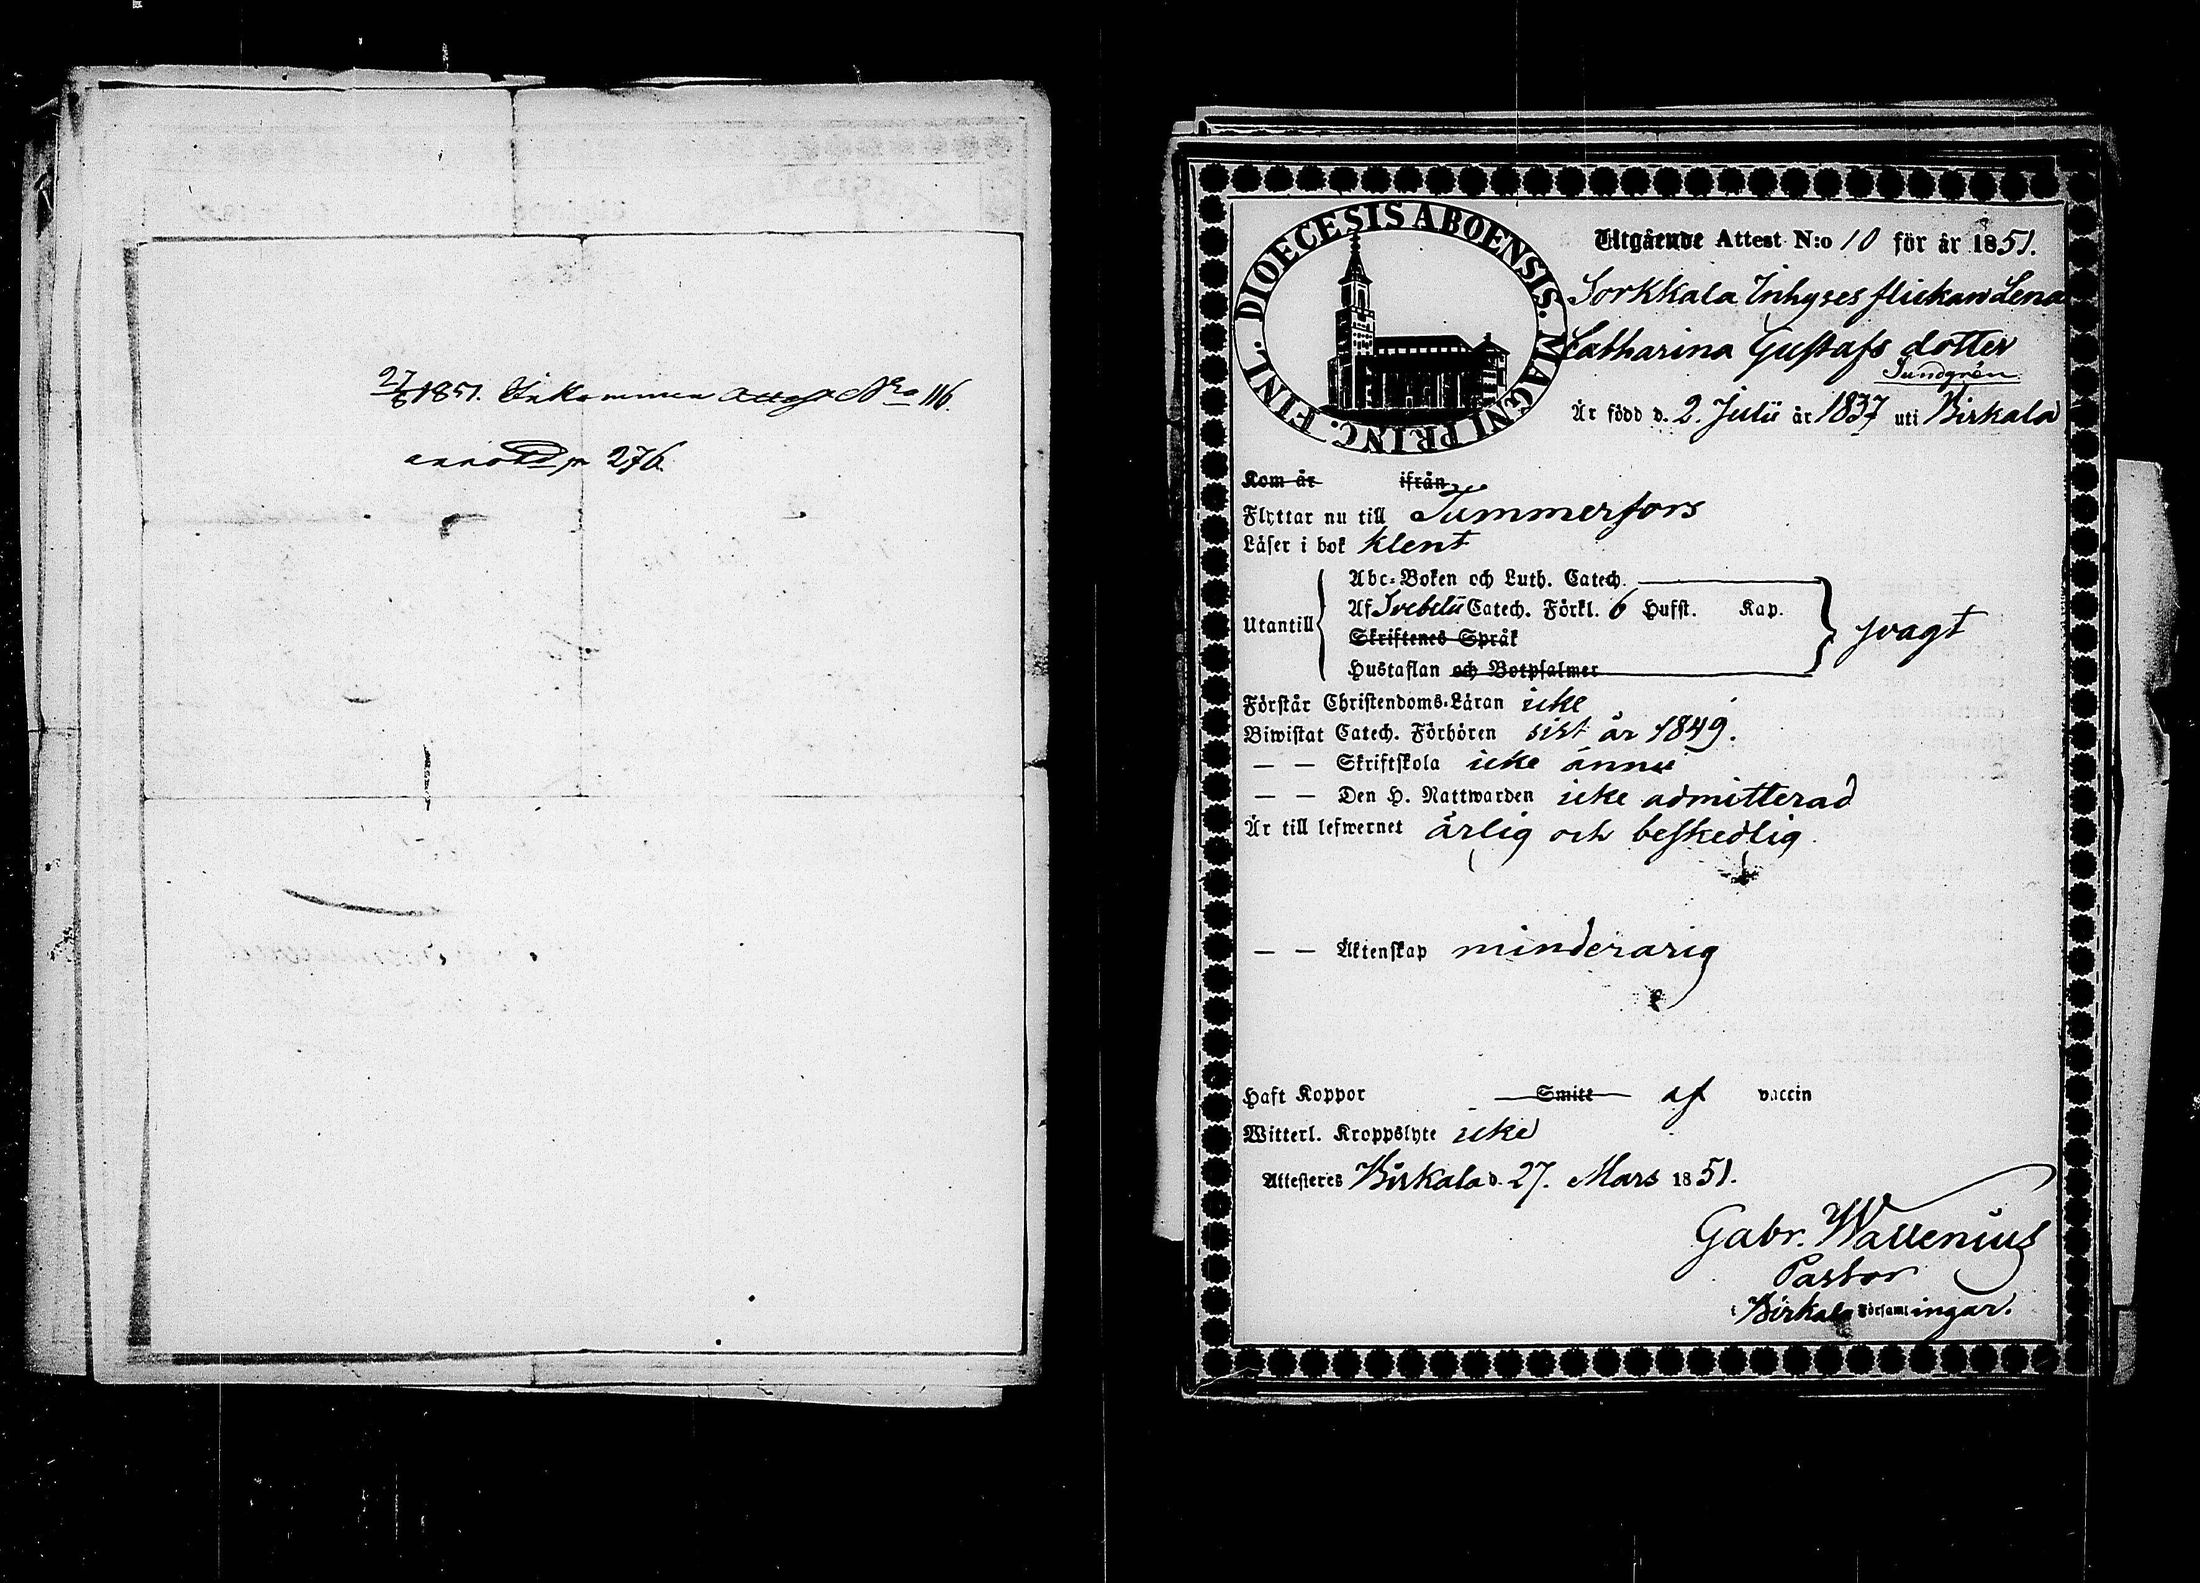 27/6 1851. Inkommen Attest Nro 116.
annot. p 276.
DIOECESIS ABOENSIS. MAGNI PRINC. FINL.
Utgående Attest N:o 10 för år 1851.
Sorkkala Inhyses flickan Lena
Catharina Gustafs dotter
Sundgrén
Är född d. 2. Julii år 1837 uti Birkala
Kom år ifrån
Flyttar nu till Tammerfors
Läser i bok klent
Abc-Boken och Luth. Catech.
Utantill Af Svebelii Catech. Förkl. 6 Hufst. Kap. svagt
Skriftenes Språk
Hustaflan och Botpsalmer
Förstår Christendoms-Läran icke
Biwistat Catech. Förhören sist år 1849.
— — Skriftskola icke ännu
— — Den H. Nattwarden icke admitterad
Är till lefwernet ärlig och beskedlig
— — Äktenskap minderarig
Haft Koppor Smitt af vaccin
Witterl. Kroppslyte icke
Attesteres Birkala d. 27. Mars 1851.
Gabr. Wallenius
Pastor
i Birkala Församlingar.